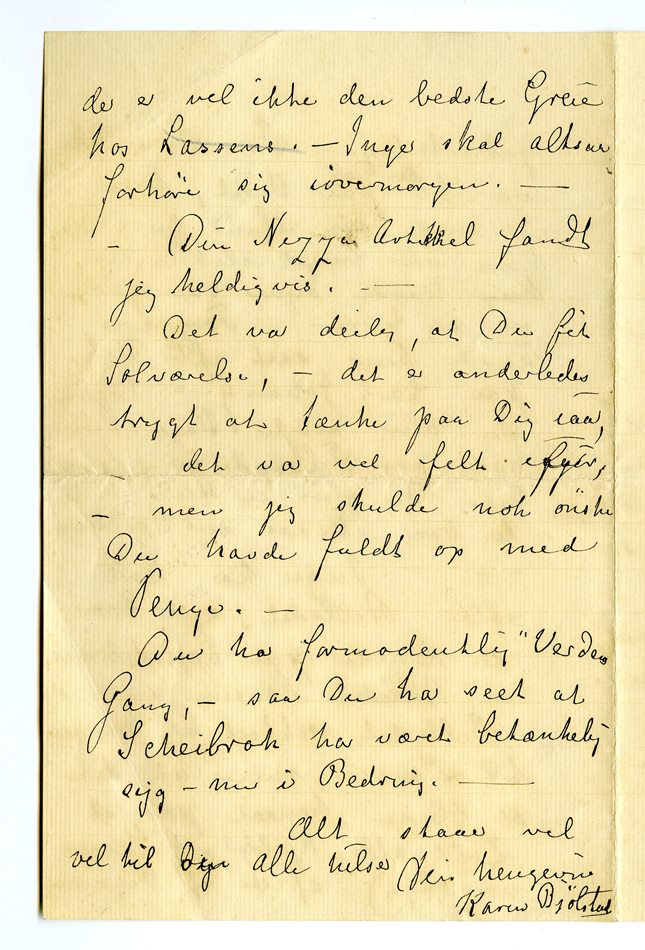 de er vel ikke den bedste Greie
hos Lassens. — Inger skal altsaa
forhøre sig iovermorgen. —
– Din Nizza Artikkel fandt
jeg heldigvis. —
Det va deilig, at Du fik
Solværelse, – det er anderledes
trygt at tænke paa Dig saa,
– det va vel felt ifyor,
– men jeg skulde nok ønske
Du havde fuldt op med
Penge. —
Du ha formodentlig "Verdens
Gang, – saa Du ha seet at
Scheibrok har været betænkelig
syg – nu i Bedring. —
Alt staar vel
vel til alle hilser Din hengivne
Karen Bjølstad